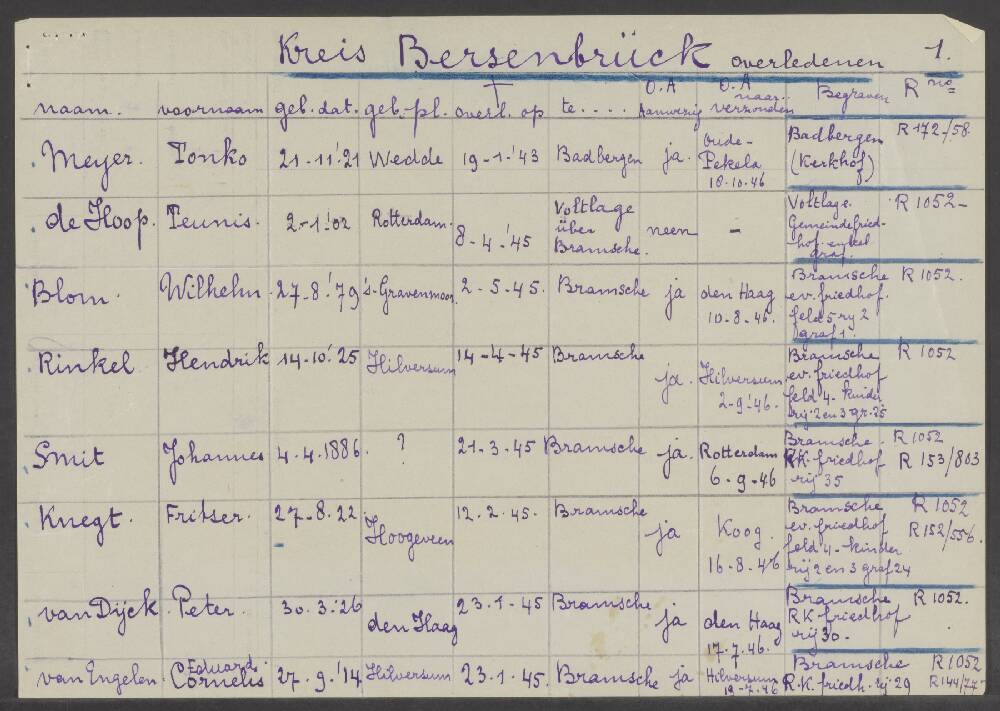 Kreis Bersenbrück overledenen 1.
naam. voornaam geb. dat. geb.-pl. overl. op te.... O.A Aanwezig O.A naar.. verzonden Begraven R no
Meyer. Tonko 21-11-'21 Wedde 19-1-'43 Badbergen ja. Oude-
Pekela
18.10.46 Badbergen
(Kerkhof) R 172-/58
de Hoop. Teunis. 2-1-'02 Rotterdam. 8-4-'45 Voltlage
über
Bramsche. neen - Voltlage.
Gemeindefried-
hof. enkel
graf. R 1052-
Blom. Wilhelm. 27-8-'79 's-Gravenmoer. 2-5-45. Bramsche ja den Haag
10-8-46. Bramsche
ev. friedhof.
feld 5 rij 2
graf 1. R 1052.
Rinkel Hendrik 14-10-'25 Hilversum 14-4-45 Bramsche ja. Hilversum
2-9-'46. Bramsche
ev. friedhof
feld 4- kinder
rij 2 en 3 gr. 25 R 1052
Smit Johannes 4.4.1886. ? 21-3-45 Bramsche ja. Rotterdam
6-9-46 Bramsche.
R.K. friedhof
rij 35 R 1052
R 153/803
Knegt. Fritser. 27-8.22 Hoogeveen 12.2.45. Bramsche ja Koog.
16-8-46 Bramsche
ev. friedhof
feld 4 - kinder
rij 2 en 3 graf 24 R 1052
R 152/556.
van Dijck. Peter. 30.3.'26 den Haag 23.1-45 Bramsche ja den Haag
17.7.46. Bramsche
R.K friedhof
rij 30. R 1052.
van Engelen. Eduard.
Cornelis 27.9.'14 Hilversum 23.1.45. Bramsche ja Hilversum
19-7-46 Bramsche
R.K. friedh. rij 29 R 1052
R 144/77